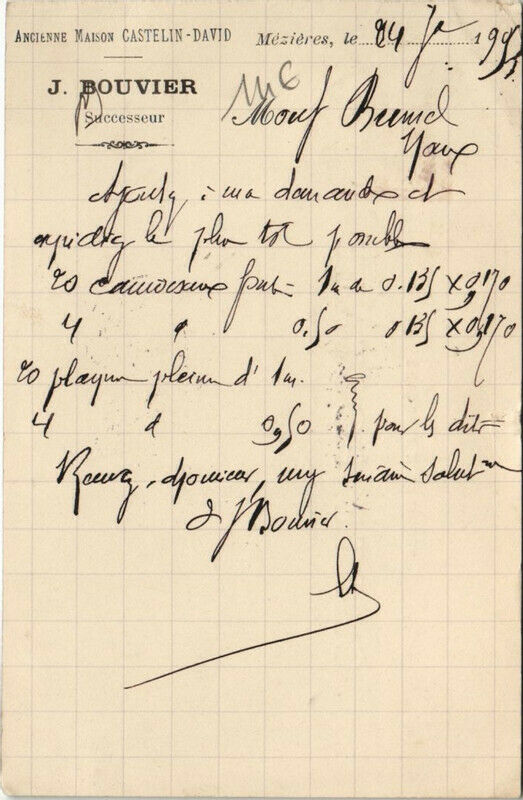 ANCIENNE MAISON CASTELIN-DAVID
Mézières, le 24 19
J. BOUVIER
Successeur
Mons
Ajoutez à ma demande et
expediez le plus tôt possible
20 caniveaux fonte 1m de 0.135 x 0,170
4 " 0.50 0.135 x 0,170
20 plaques pleines d' 1m.
4 " 0,50 pour les dits
Recevez, Monsieur, mes salut
J Bouvier